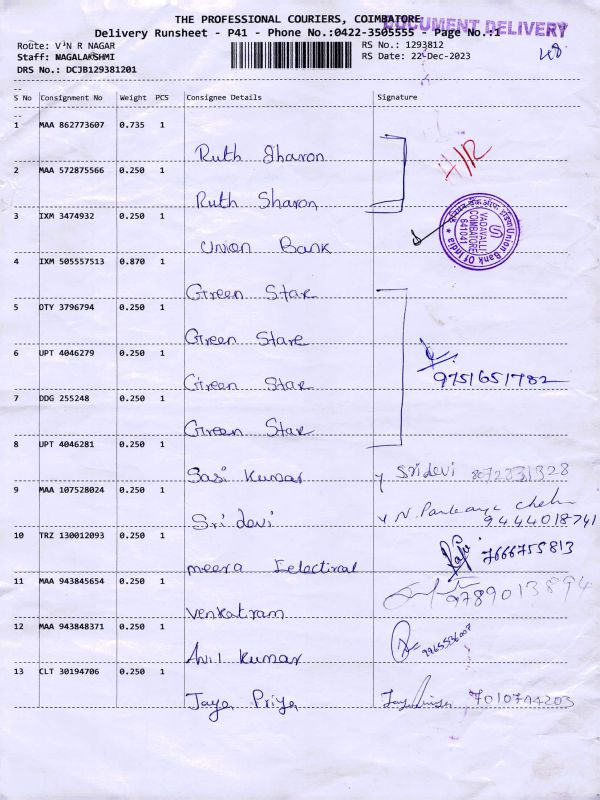 THE PROFESSIONAL COURIERS, COIMBATORE
DOCUMENT DELIVERY
Delivery Runsheet - P41 - Phone No.:0422-3505555 - Page No.:1
Route: V N R NAGAR
RS No.: 1293812
Staff: NAGALAKSHMI
RS Date: 22-Dec-2023
DRS No.: DCJB129381201
S No Consignment No Weight PCS Consignee Details Signature
1 MAA 862773607 0.735 1 Ruth Sharon
2 MAA 572875566 0.250 1 Ruth Sharon
3 IXM 3474932 0.250 1 Union Bank
Union Bank Of India
VADAVALLI
COIMBATORE
641041
4 IXM 505557513 0.870 1 Green Star
5 DTY 3796794 0.250 1 Green Stare
6 UPT 4046279 0.250 1 Green Star
9751651782
7 DDG 255248 0.250 1 Green Star
8 UPT 4046281 0.250 1 Sasi Kumar Sridevi
9 MAA 107528024 0.250 1 Sri devi 9444018741
10 TRZ 130012093 0.250 1 meera Eelectiral 7666755813
11 MAA 943845654 0.250 1 Venkatram 9789013894
12 MAA 943848371 0.250 1 Anil Kumar 9965536007
13 CLT 30194706 0.250 1 Jaya Priya 7010744203